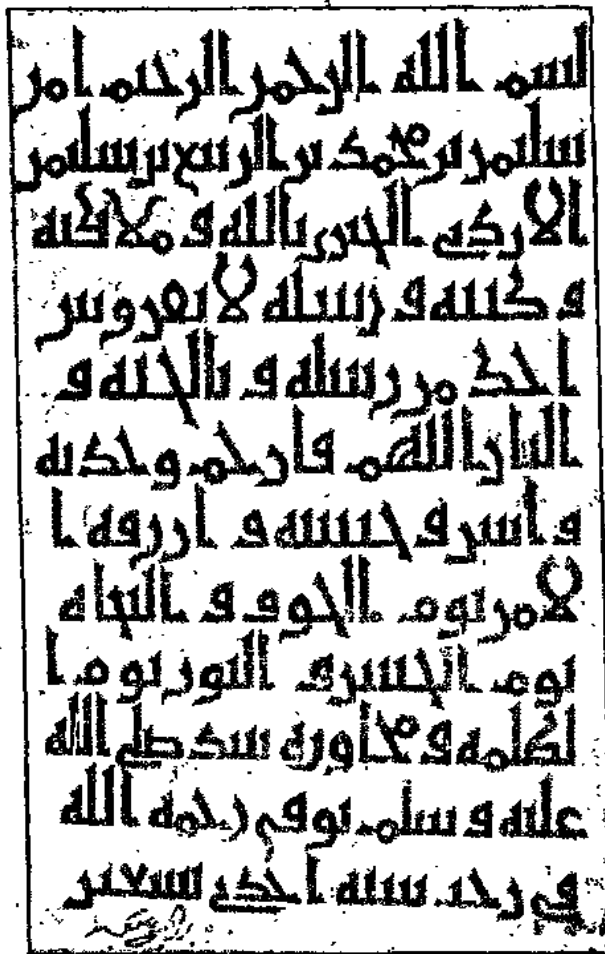 بسم الله الرحمن الرحيم امن
سليمن بن محمد بن الربيع بن سليمن
الازدي الجيزي بالله و ملائكته
و كتبه و رسله لا نفرق بين
احد من رسله و بالجنه و
النار اللهم فارحم وحدته
و انس وحشته و ارزقه ا
لامن يوم الخوف و النجاه
يوم الحشر و النور يوم ا
لظلمه و مجاوره نبيك صلى الله
عليه و سلم توفي رحمه الله
في رجب سنه احدى